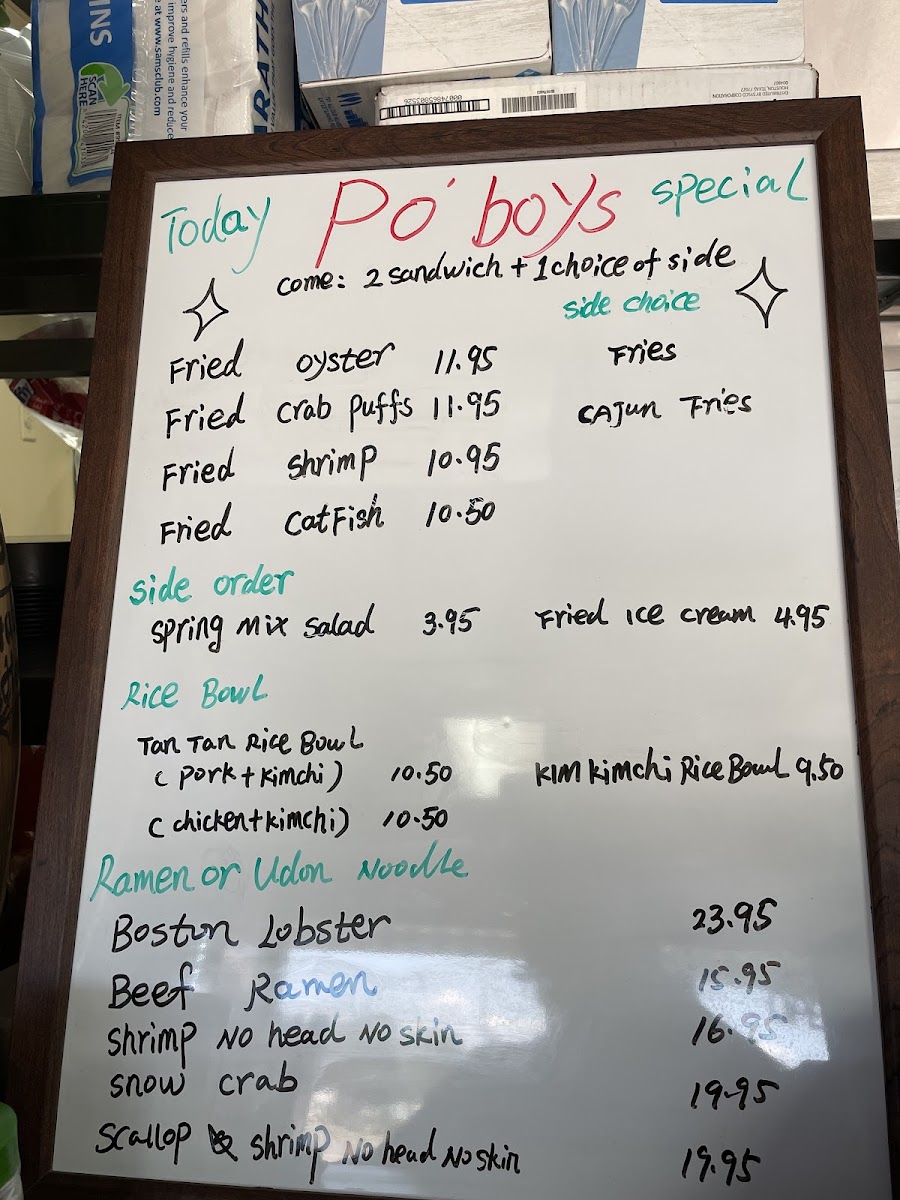 INS
SCAN HERE
ers and refills enhance your
improve hygiene and reduce
e at www.samsclub.com
RATH
00074865003526
HOUSTON, TEXAS 77077
Today Po' boys special
come: 2 sandwich + 1 choice of side
side choice
Fried oyster 11.95 Fries
Fried crab puffs 11.95 CAJun Fries
Fried shrimp 10.95
Fried catFish 10.50
side order
spring mix salad 3.95 Fried Ice cream 4.95
Rice Bowl
Tan Tan Rice Bowl
(pork + kimchi) 10.50 KIM kimchi Rice Bowl 9.50
(chicken + kimchi) 10.50
Ramen or Udon Noodle
Boston Lobster 23.95
Beef Ramen 15.95
shrimp No head No skin 16.95
snow crab 19.95
scallop & shrimp No head No skin 19.95